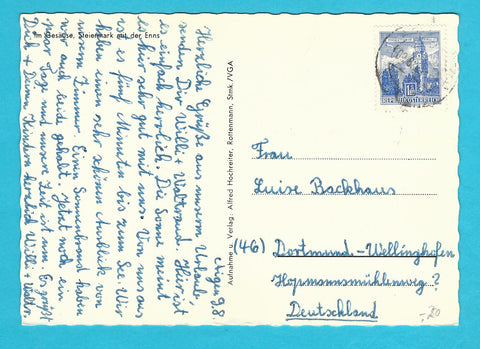 Im Gesäuse, Steiermark mit der Enns
Aigen 9.8.
Herzliche Grüße aus unserem Urlaub
senden Dir Willi + Waltraud. Hier ist
es einfach herrlich. Die Sonne meint
es hier sehr gut mit uns. Von uns aus
ist es fünf Minuten bis zum See. Wir
haben einen sehr schönen Ausblick von
unserm Zimmer. Einen Sonnenbrand haben
wir auch beide gehabt. Jetzt noch ein
paar Tage und unsere Zeit ist um. Es grüßt
Dich + Deine Kinder herzlich Willi + Waltr.
Aufnahme u. Verlag: Alfred Hochreiter, Rottenmann, Stmk. /VGA
REPUBLIK ÖSTERREICH
Frau
Luise Backhaus
(46) Dortmund-Wellinghofen
Hopmannsmühlenweg 7
Deutschland
-.80